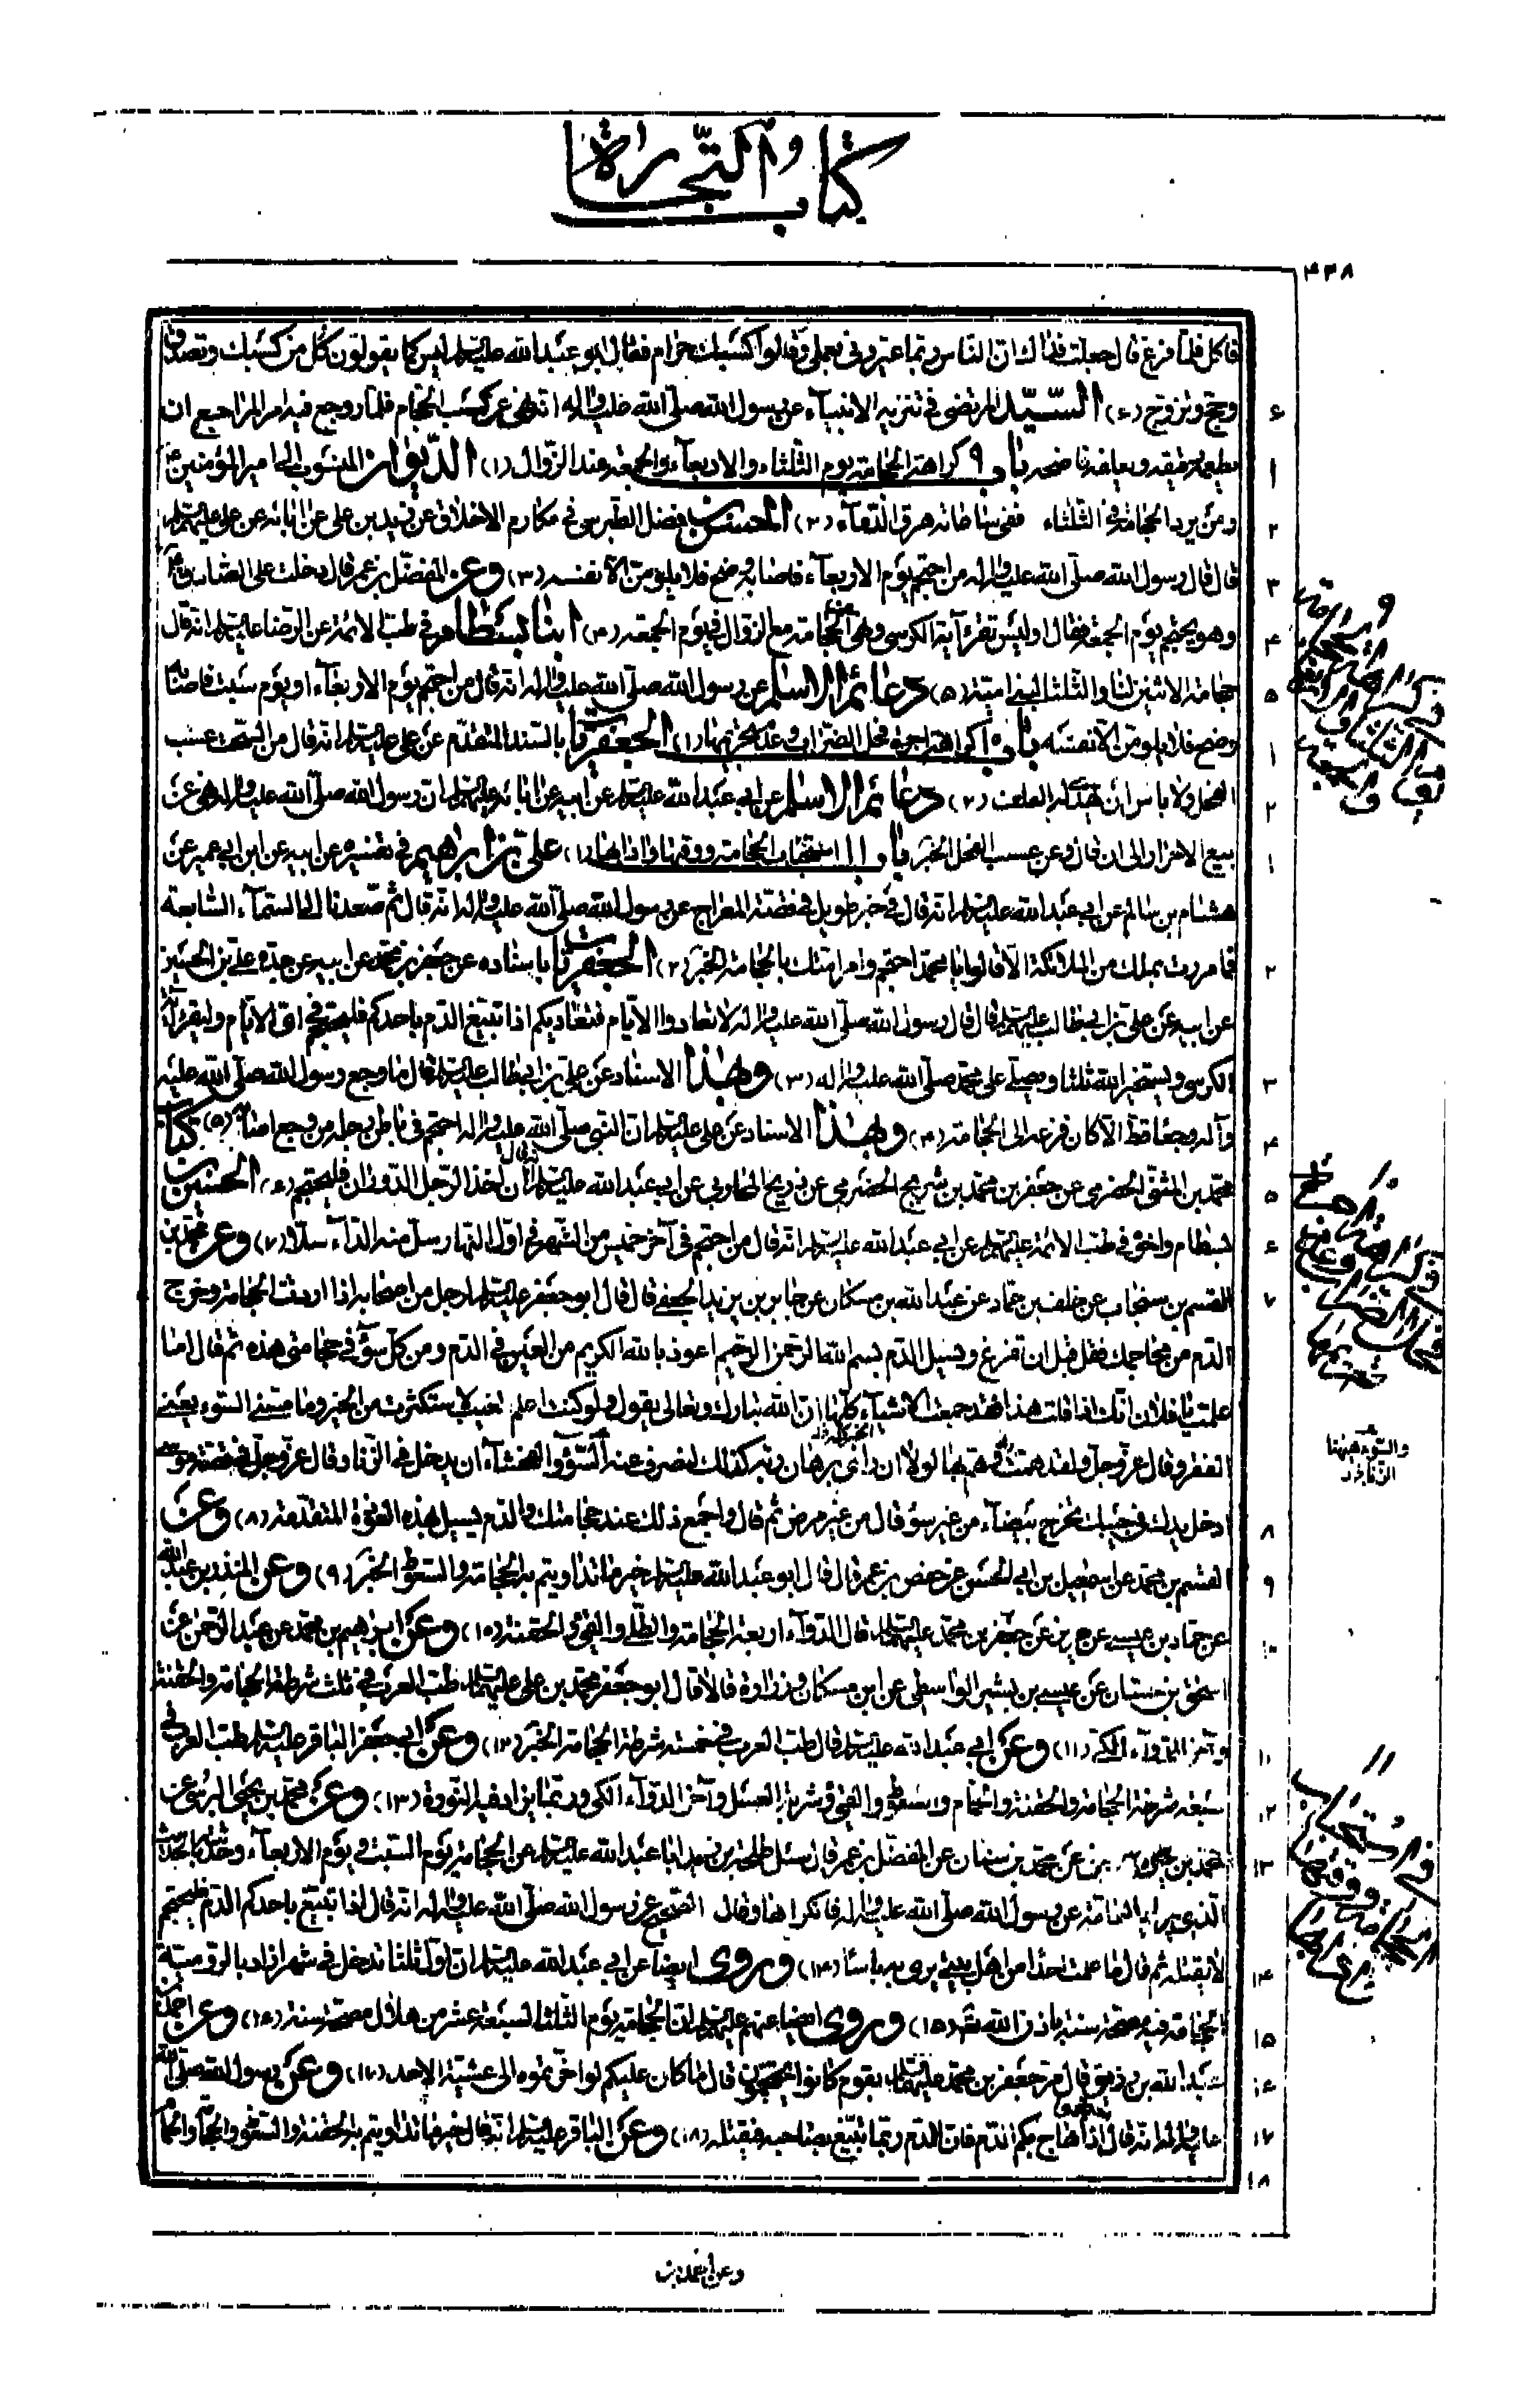 كتاب التجارة
۴۳۸
فاكل فلما فرغ قال جعلت فداك ان الناس ربما عيروني بعملي وقالوا كسبك حرام فقال ابو عبد الله عليه السلام ليس كما يقولون كل من كسبك وتصدق
وحج وتزوج (۶) السيد المرتضى في تنزيه الانبياء عن رسول الله صلى الله عليه وآله انه نهى عن كسب الحجام فلما روجع فيه امر المراجع ان
يطعمه رقيقه ويعلفه ناضحه باب ۹ كراهة الحجامة يوم الثلثاء والاربعاء والجمعة عند الزوال (۱) الديوان المنسوب الى امير المؤمنين
ومن يرد الحجامة في الثلثاء ففي ساعاته هرق الدماء (۲) الحسن بن فضل الطبرسي في مكارم الاخلاق عن زيد بن علي عن آبائه عن علي عليهم السلام
قال قال رسول الله صلى الله عليه وآله من احتجم يوم الاربعاء فاصابه وضح فلا يلومن الا نفسه (۳) وعن المفضل بن عمر قال دخلت على الصادق
وهو يحتجم يوم الجمعة فقال اوليس تقرء آية الكرسي ونهى عن الحجامة مع الزوال في يوم الجمعة (۴) ابنا بسطام في طب الائمة عن الرضا عليه السلام انه قال
حجامة الاثنين لنا والثلثا لبني امية (۵) دعائم الاسلام عن رسول الله صلى الله عليه وآله انه قال من احتجم يوم الاربعاء او يوم سبت فاصابه
وضح فلا يلومن الا نفسه باب ۱۰ كراهة اجرة فحل الضراب وعدم تحريمها (۱) الجعفريات بالسند المتقدم عن علي عليه السلام انه قال من السحت عسب
الفحل ولا باس ان يهدى له العلف (۲) دعائم الاسلام عن ابي عبد الله عليه السلام عن ابيه عن آبائه عليهم السلام ان رسول الله صلى الله عليه وآله نهى عن
بيع الاحرار الى ان قال وعن عسب الفحل الخبر باب ۱۱ استحباب الحجامة ووقتها وآدابها (۱) علي بن ابراهيم في تفسيره عن ابيه عن ابن ابي عمير عن
هشام بن سالم عن ابي عبد الله عليه السلام انه قال في خبر طويل في قصة المعراج عن رسول الله صلى الله عليه وآله انه قال ثم صعدنا الى السماء السابعة
فما مررت بملك من الملائكة الا قالوا يا محمد احتجم وامر امتك بالحجامة الخبر (۲) الجعفريات باسناده عن جعفر بن محمد عن ابيه عن جده علي بن الحسين
عن ابيه عن علي بن ابيطالب عليهم السلام قال قال رسول الله صلى الله عليه وآله لا تعادوا الايام فتعاديكم اذا تبيغ الدم باحدكم فليحتجم في اي الايام وليقرء آية
الكرسي ويستخير الله ثلثا ويصلي على محمد صلى الله عليه وآله (۳) وبهذا الاسناد عن علي بن ابيطالب عليه السلام قال ما وجع رسول الله صلى الله عليه
وآله وجعا قط الا كان فزعه الى الحجامة (۴) وبهذا الاسناد عن علي عليه السلام ان النبي صلى الله عليه وآله احتجم في باطن رجله من وجع اصابه (۵) كتاب
محمد بن المثنى الحضرمي عن جعفر بن محمد بن شريح الحضرمي عن ذريح المحاربي عن ابي عبد الله عليه السلام انه قال ان اخذ الرجل الدوران فليحتجم (۶) الحسين بن
بسطام واخوه في طب الائمة عليهم السلام عن ابي عبد الله عليه السلام انه قال من احتجم في آخر خميس من الشهر في اول النهار سل منه الداء سلا (۷) وعن محمد بن
القسم بن منجاب عن خلف بن حماد عن عبد الله بن مسكان عن جابر بن يزيد الجعفي قال قال ابو جعفر عليه السلام لرجل من اصحابه اذا اردت الحجامة وخرج
الدم من محاجمك فقل قبل ان تفرغ ويسيل الدم بسم الله الرحمن الرحيم اعوذ بالله الكريم من العين في الدم ومن كل سوء في حجامتي هذه ثم قال اما
علمت يا فلان انك اذا قلت هذا فقد جمعت الاشياء كلها ان الله تبارك وتعالى يقول ولو كنت اعلم الغيب لاستكثرت من الخير وما مسني السوء يعني
الفقر وقال عز وجل ولقد همت به وهم بها لولا ان راى برهان ربه كذلك لنصرف عنه السوء والفحشاء ان يدخل في الزنا وقال عز وجل في قصة موسى
ادخل يدك في جيبك تخرج بيضاء من غير سوء قال من غير مرض ثم قال واجمع ذلك عند حجامتك والدم يسيل بهذه العوذة المتقدمة (۸) وعن
القسم بن محمد عن اسمعيل بن ابي الحسن عن حفص بن عمر قال قال ابو عبد الله عليه السلام خير ما تداويتم به الحجامة والسعوط الخبر (۹) وعن المنذر بن عبد الله
عن حماد بن عيسى عن حريز عن جعفر بن محمد عليهما السلام قال الدواء اربعة الحجامة والطلي والقيء والحقنة (۱۰) وعن ابرهيم بن محمد عن عبد الرحمن عن
اسحق بن حسان عن عيسى بن بشير الواسطي عن ابن مسكان وزرارة قالا قال ابو جعفر محمد بن علي عليهما السلام طب العرب في ثلث شرطة الحجامة والحقنة
وآخر الدواء الكي (۱۱) وعن ابي عبد الله عليه السلام قال طب العرب في خمسة شرطة الحجامة الخبر (۱۲) وعن ابي جعفر الباقر عليه السلام طب العرب في
سبعة شرطة الحجامة والحقنة والحمام والسعوط والقيء وشربة العسل وآخر الدواء الكي وربما يزاد فيه النورة (۱۳) وعن محمد بن يحيى البرسي عن
محمد بن عن محمد بن سنان عن المفضل بن عمر قال سئل طلحة بن زيد ابا عبد الله عليه السلام عن الحجامة يوم السبت ويوم الاربعاء وحدثته بالحديث
الذي يرويه العامة عن رسول الله صلى الله عليه وآله فانكرها وقال الصحيح عن رسول الله صلى الله عليه وآله انه قال اذا تبيغ باحدكم الدم فليحتجم
لا يقتله ثم قال ما علمت احدا من اهل بيتي يرى به باسا (۱۴) وروي ايضا عن ابي عبد الله عليه السلام ان اول ثلثا تدخل في شهر اذار بالرومية
الحجامة فيه مصحة سنة باذن الله تعالى (۱۵) وروي ايضا عنهم عليهم السلام ان الحجامة يوم الثلثا لسبعة عشر من هلال مصحة سنة (۱۶) وعن احمد بن
عبد الله بن زريق قال مر جعفر بن محمد عليهما السلام بقوم كانوا يحتجمون قال ما كان عليكم لو اخرتموه الى عشية الاحد (۱۷) وعن رسول الله صلى الله
عليه وآله انه قال اذا هاج بكم الدم فان الدم ربما تبيغ بصاحبه فيقتله (۱۸) وعن الباقر عليه السلام انه قال خير ما تداويتم به الحقنة والسعوط والحجامة والحمام
والسوء هيهنا
الزنا خ‍ د
وعن احمد بن